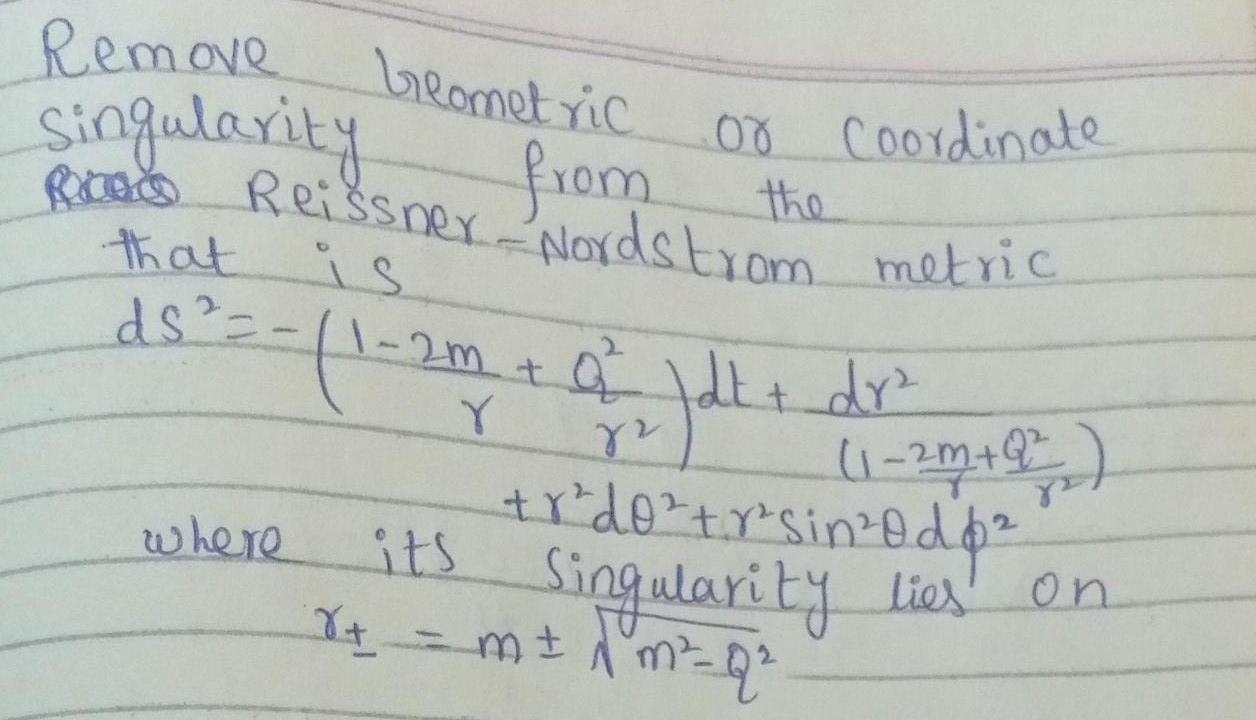 Remove Geometric or Coordinate
singularity from the
Reissner-Nordstrom metric
that is
ds² = -(1 - 2m/r + Q²/r²)dt + dr²/(1 - 2m/r + Q²/r²)
+ r²dθ² + r²sin²θdϕ²
where its singularity lies on
r± = m ± √(m² - Q²)